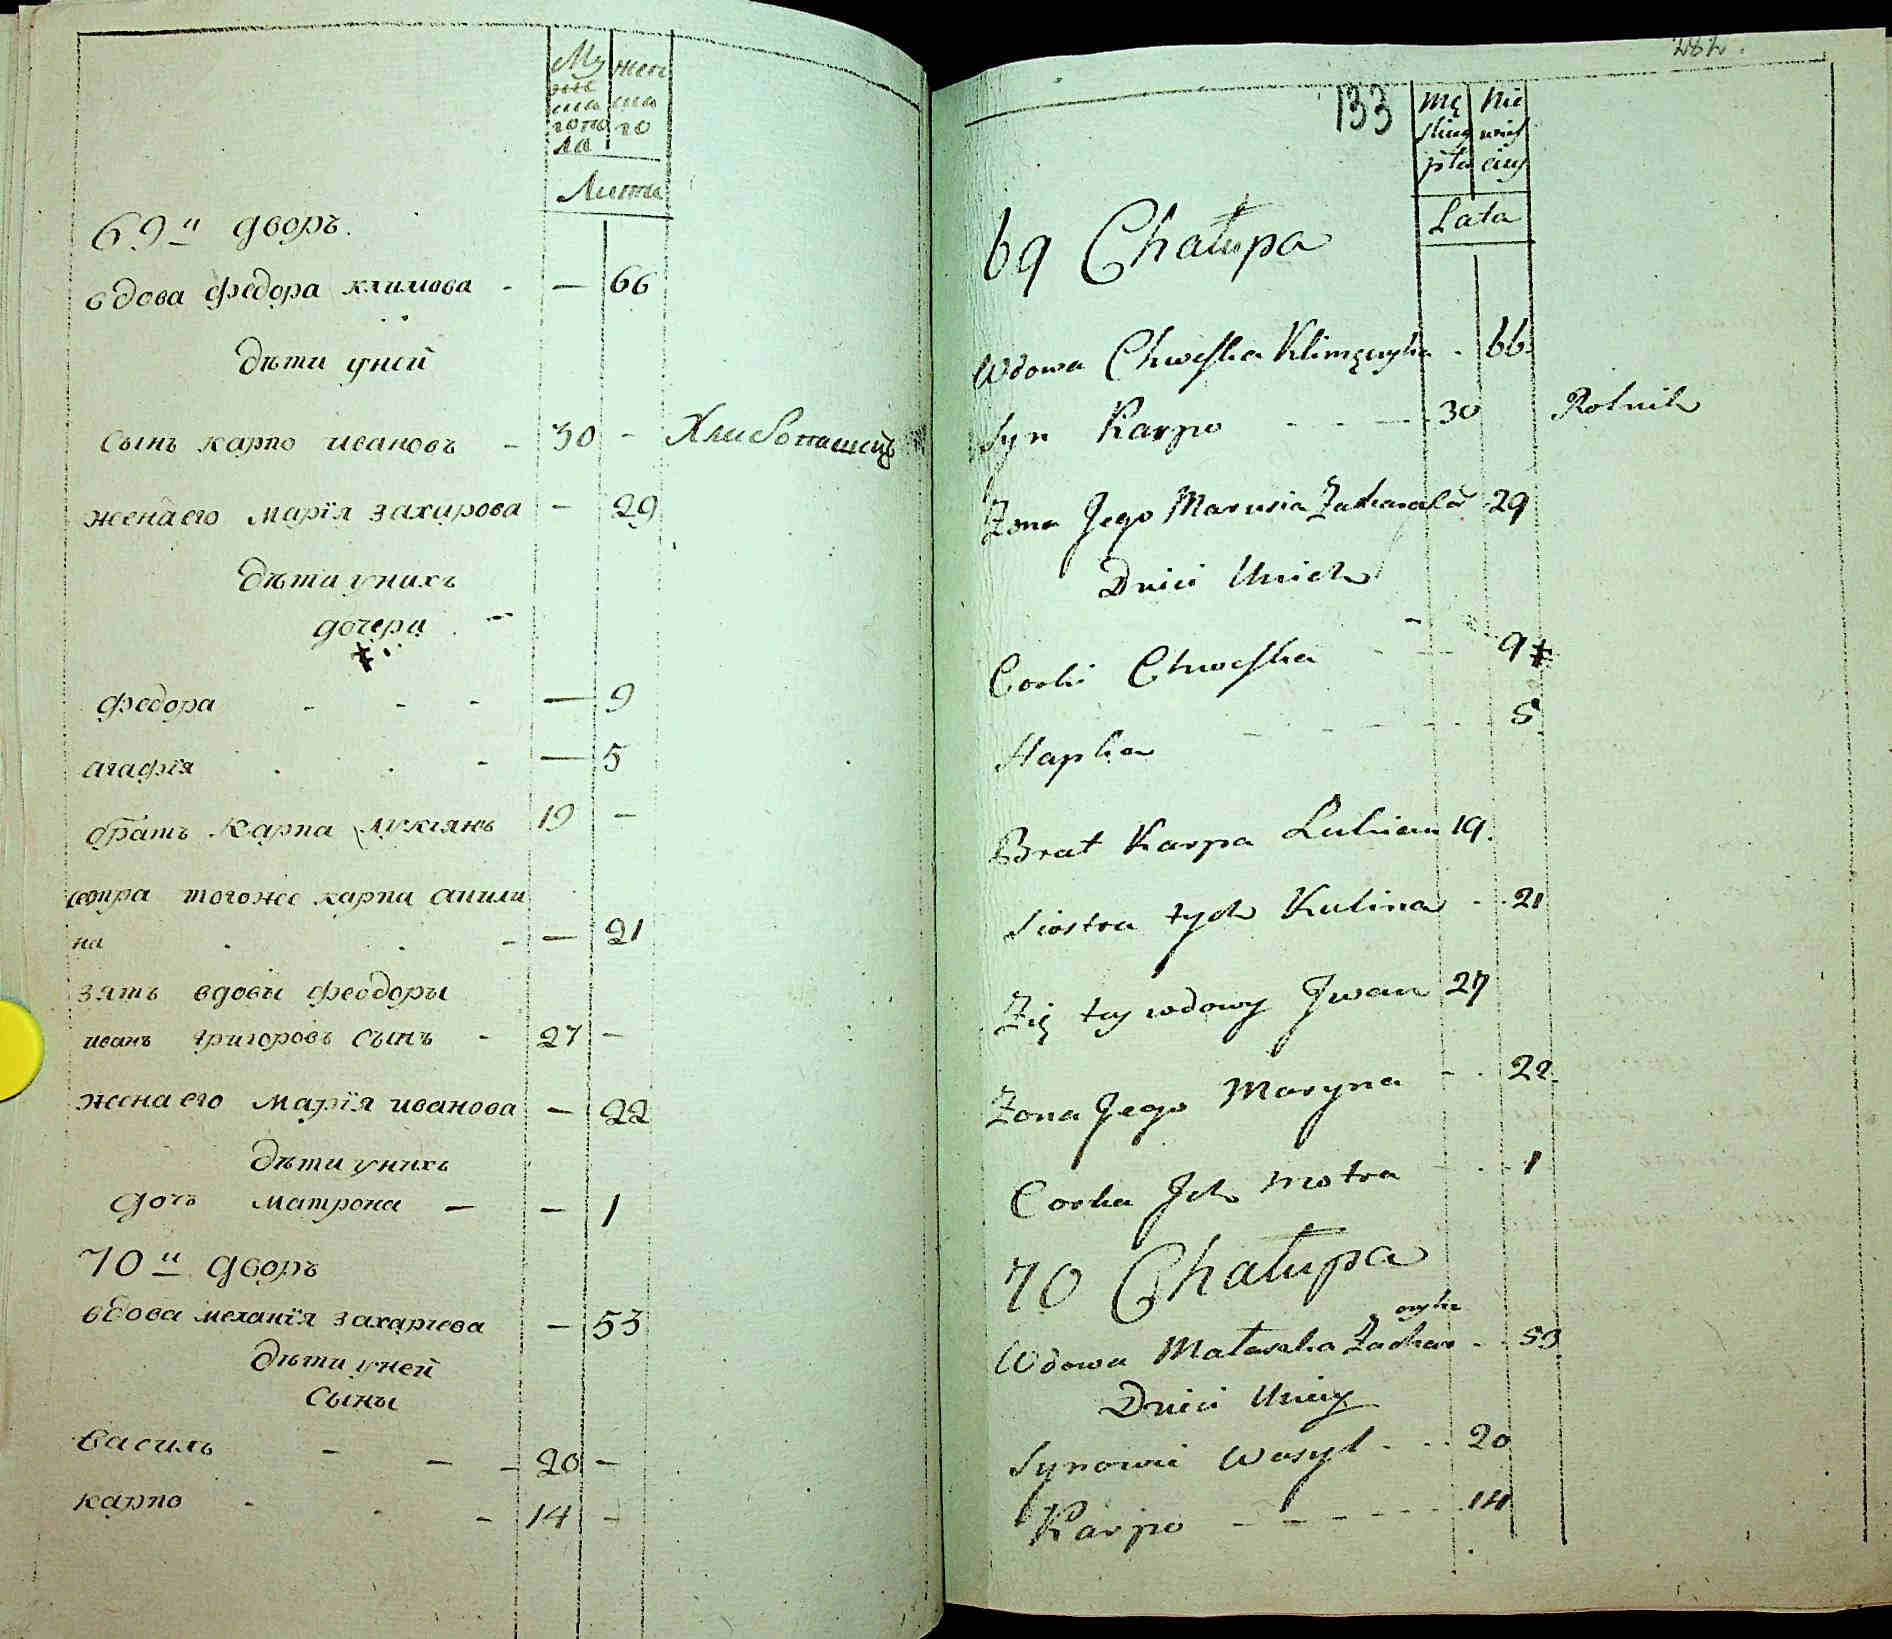 Му жес
же
ска ска
го по го
ла
Лита
69й дворъ.
вдова федора климова - — 66
дѣти уней
сынъ карпо ивановъ - 30 - Хлибопашецъ
жена его марїя захарова — 29
дѣти унихъ
дочери. -
федора - - - — 9
агафїя . . - — 5
братъ карпа лукїянъ 19 -
сестра тогоже карпа акили
на . . - — 21
зять вдовы феодоры
иванъ григоровъ сынъ - 27 -
жена его марїя иванова — 22
дѣти унихъ
дочъ матрона — - 1
70й дворъ
вдова меланїя захарчева — 53
дѣти уней
сыны
василь - - - 20 -
карпо - . - 14 -
282.
133
Mę Nie
skiey wieś
płci ciey
Lata
69 Chałupa
Wdowa Chweska Klimczycha . 66.
Syn Karpo - - - - 30 Rolnik
Zona Jego Marusia Zacharośa 29
Dzieci Unich
Corki Chweska - - - 9
Hapka - - - - - 5
Brat Karpa Lukian 19.
Siostra tych Kulina - . 21
Zię tey wdowy Jwan 27
Zona Jego Maryna - . 22.
Corka Jch Motra - . - 1
70 Chałupa
Wdowa Małaszka Zachar oycha - - 53
Dzieci Uniey
Synowie Wasyl - . . 20
Karpo - - - - - 14